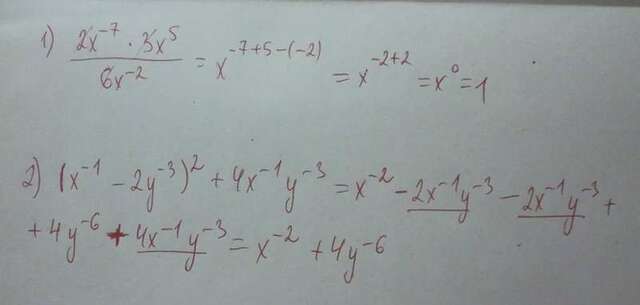 1) (2x⁻⁷ · 3x⁵)/(6x⁻²) = x⁻⁷⁺⁵⁻⁽⁻²⁾ = x⁻²⁺² = x⁰ = 1
2) (x⁻¹ - 2y⁻³)² + 4x⁻¹y⁻³ = x⁻² - 2x⁻¹y⁻³ - 2x⁻¹y⁻³ +
+ 4y⁻⁶ + 4x⁻¹y⁻³ = x⁻² + 4y⁻⁶